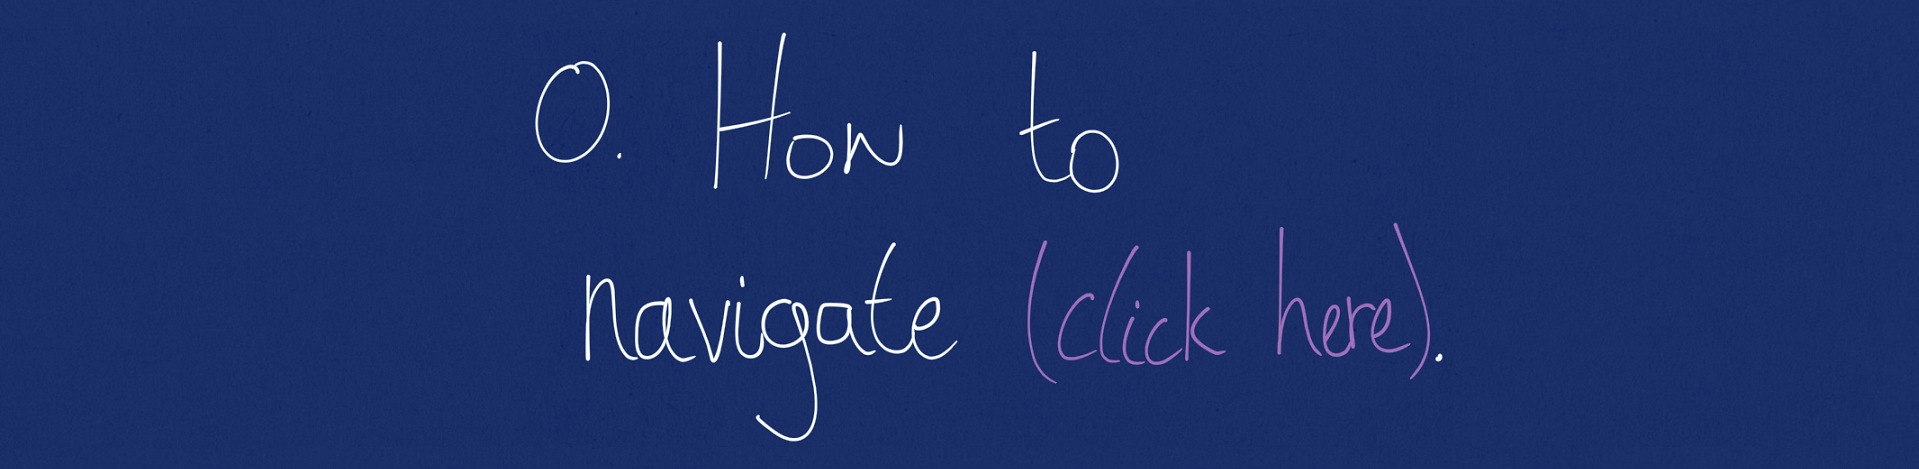 0. How to
navigate (click here).